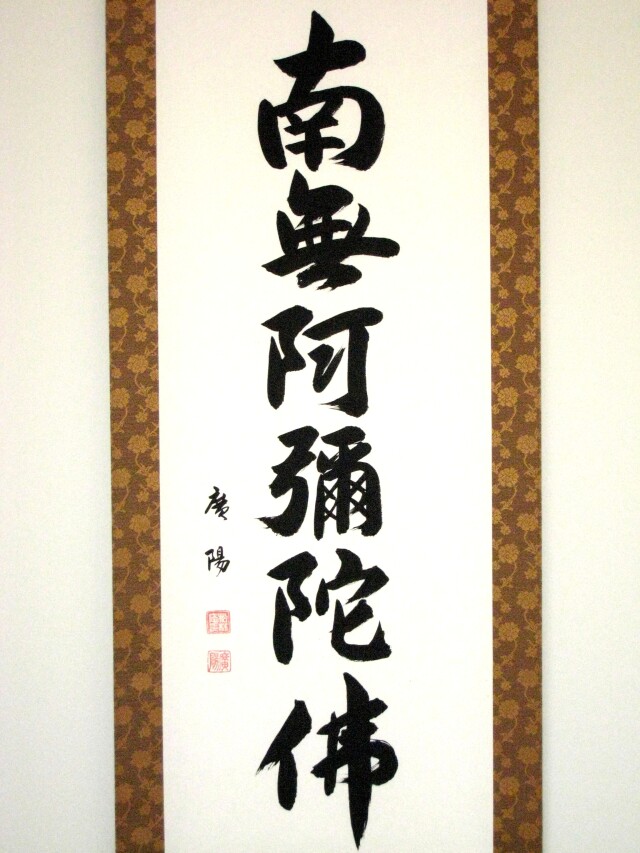 南無阿彌陀佛
廣陽